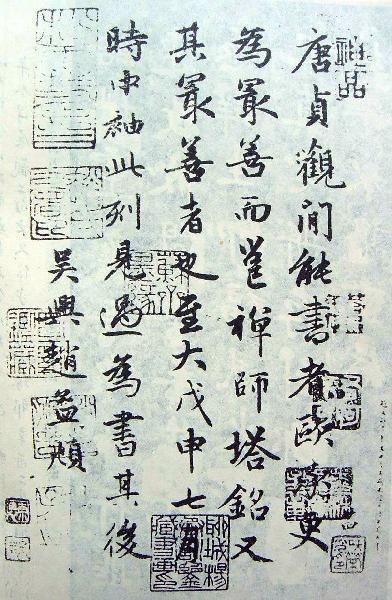 神品
唐貞觀間能書者歐率更
為最善而邕禪師塔銘又
其最善者也至大戊申七月
時中袖此刻見過為書其後
吳興趙孟頫